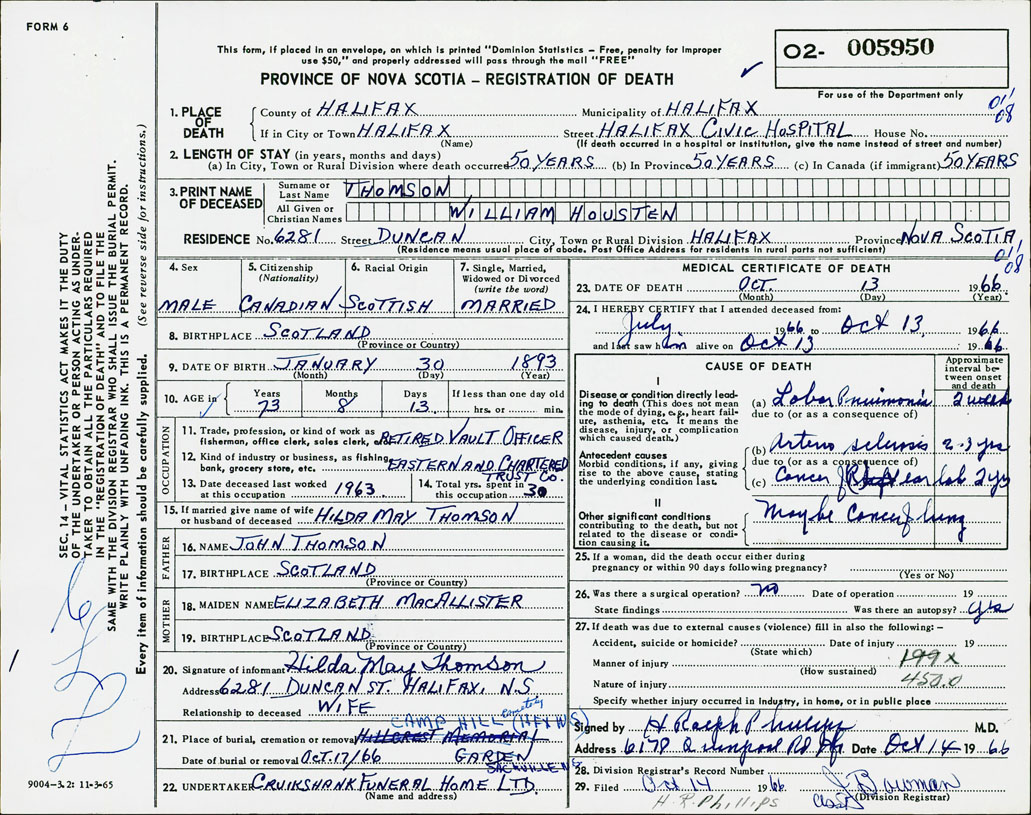 FORM 6
This form, if placed in an envelope, on which is printed "Dominion Statistics – Free, penalty for improper
use $50," and properly addressed will pass through the mail "FREE"
PROVINCE OF NOVA SCOTIA – REGISTRATION OF DEATH
02- 005950
For use of the Department only
011
08
1. PLACE OF DEATH
County of HALIFAX Municipality of HALIFAX
If in City or Town HALIFAX Street HALIFAX CIVIC HOSPITAL House No.
(Name) (If death occurred in a hospital or institution, give the name instead of street and number)
2. LENGTH OF STAY (in years, months and days)
(a) In City, Town or Rural Division where death occurred 50 YEARS (b) In Province 50 YEARS (c) In Canada (if immigrant) 50 YEARS
3. PRINT NAME OF DECEASED
Surname or Last Name THOMSON
All Given or Christian Names WILLIAM HOUSTEN
RESIDENCE No. 6281 Street DUNCAN City, Town or Rural Division HALIFAX Province NOVA SCOTIA
(Residence means usual place of abode. Post Office Address for residents in rural parts not sufficient)
011
08
4. Sex 5. Citizenship (Nationality) 6. Racial Origin 7. Single, Married, Widowed or Divorced (write the word)
MALE CANADIAN SCOTTISH MARRIED
8. BIRTHPLACE SCOTLAND
(Province or Country)
9. DATE OF BIRTH JANUARY 30 1893
(Month) (Day) (Year)
10. AGE in Years Months Days If less than one day old
73 8 13 hrs. or min.
OCCUPATION
11. Trade, profession, or kind of work as
fisherman, office clerk, sales clerk, etc. RETIRED VAULT OFFICER
12. Kind of industry or business, as fishing,
bank, grocery store, etc. EASTERN AND CHARTERED
TRUST CO.
13. Date deceased last worked at this occupation 1963 14. Total yrs. spent in this occupation 30
15. If married give name of wife
or husband of deceased HILDA MAY THOMSON
FATHER
16. NAME JOHN THOMSON
17. BIRTHPLACE SCOTLAND
(Province or Country)
MOTHER
18. MAIDEN NAME ELIZABETH MACALLISTER
19. BIRTHPLACE SCOTLAND
(Province or Country)
20. Signature of informant Hilda May Thomson
Address 6281 DUNCAN ST. HALIFAX, N.S.
Relationship to deceased WIFE
CAMP HILL cemetery (HFX N.S)
21. Place of burial, cremation or removal HILLCREST MEMORIAL
Date of burial or removal OCT. 17/66 GARDEN
SACKVILLE NS
22. UNDERTAKER CRUIKSHANK FUNERAL HOME LTD.
(Name and address)
MEDICAL CERTIFICATE OF DEATH
23. DATE OF DEATH OCT. 13 1966
(Month) (Day) (Year)
24. I HEREBY CERTIFY that I attended deceased from:
July 1966 to Oct 13, 1966
and last saw him alive on Oct 13 1966
CAUSE OF DEATH
Approximate interval between onset and death
I
Disease or condition directly leading to death (This does not mean the mode of dying, e.g., heart failure, asthenia, etc. It means the disease, injury, or complication which caused death.)
(a) Lobar Pneumonia 2 weeks
due to (or as a consequence of)
(b) Arterio sclerosis 2-3 yrs
Antecedent causes
Morbid conditions, if any, giving rise to the above cause, stating the underlying condition last.
due to (or as a consequence of)
(c) Cancer of R ear lob 2 yrs
II
Other significant conditions
contributing to the death, but not related to the disease or condition causing it.
Maybe Cancer of lung
25. If a woman, did the death occur either during
pregnancy or within 90 days following pregnancy?
(Yes or No)
26. Was there a surgical operation? no Date of operation 19
State findings Was there an autopsy? yes
27. If death was due to external causes (violence) fill in also the following: –
Accident, suicide or homicide? Date of injury 19
(State which)
Manner of injury 199x
(How sustained)
450.0
Nature of injury
Specify whether injury occurred in industry, in home, or in public place
Signed by H Ralph Phillips M.D.
Address 6178 Quinpool Rd Hfx Date Oct 14 1966
28. Division Registrar's Record Number
29. Filed Oct. 14 1966 J Bowman
(Division Registrar)
H.R. Phillips
SEC. 14 – VITAL STATISTICS ACT MAKES IT THE DUTY
OF THE UNDERTAKER OR PERSON ACTING AS UNDER-
TAKER TO OBTAIN ALL THE PARTICULARS REQUIRED
IN THE "REGISTRATION OF DEATH" AND TO FILE THE
SAME WITH THE DIVISION REGISTRAR WHO SHALL ISSUE THE BURIAL PERMIT.
WRITE PLAINLY WITH UNFADING INK. THIS IS A PERMANENT RECORD.
Every item of information should be carefully supplied. (See reverse side for instructions.)
9004-3.2: 11-3-65